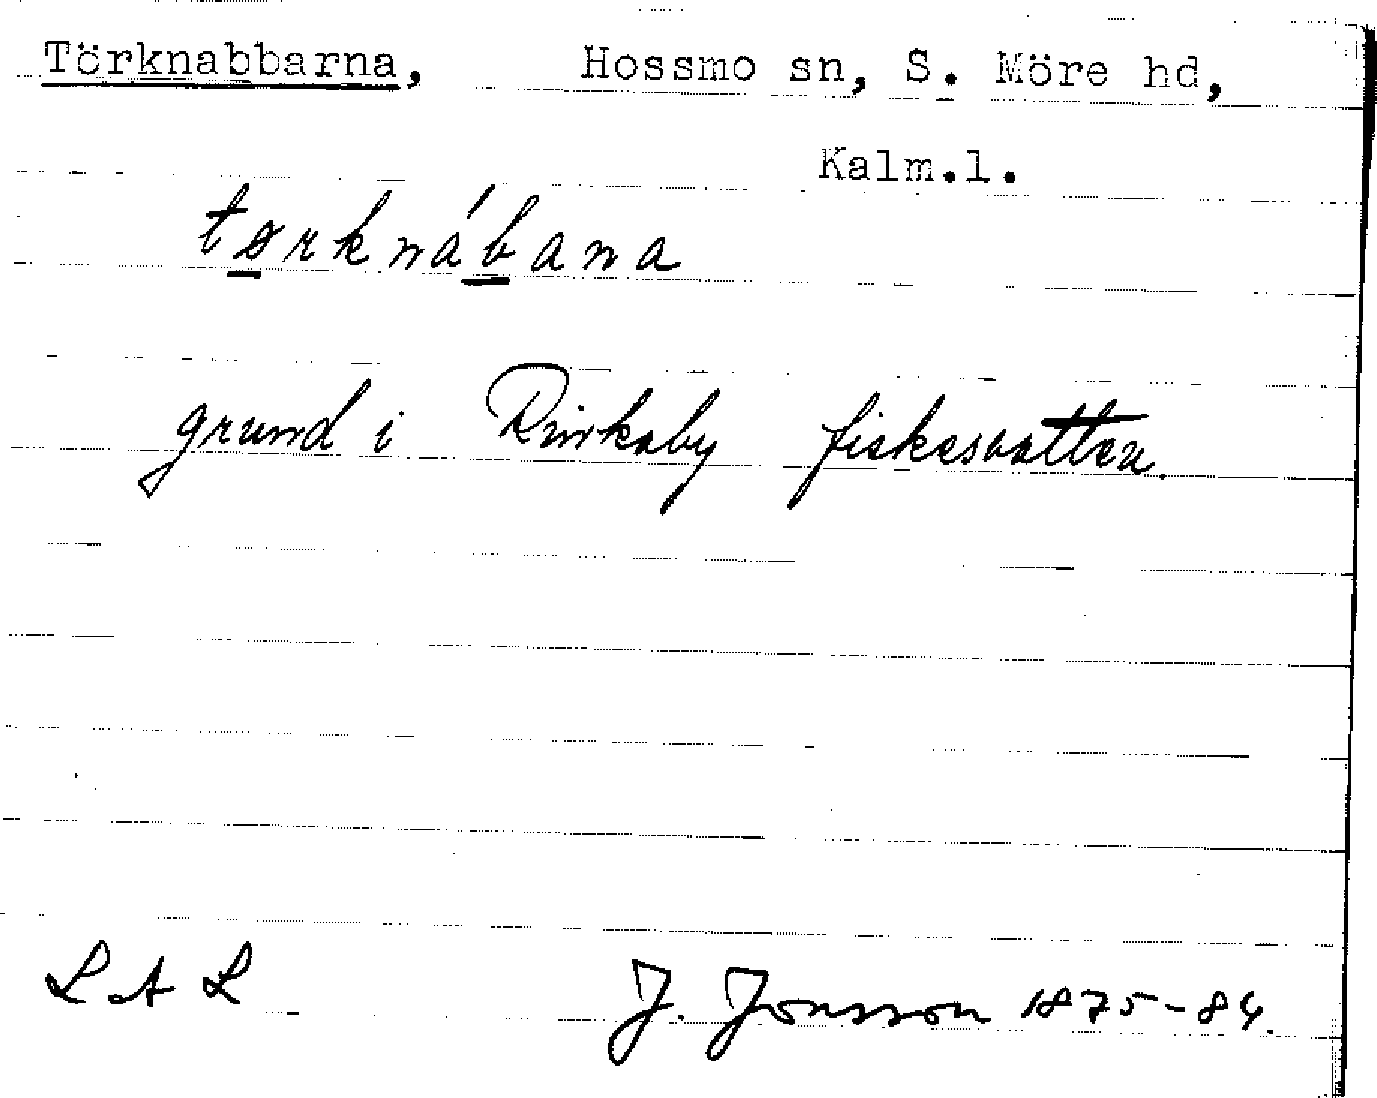 Törknabbarna, Hossmo sn, S. Möre hd,
Kalm.l.
tørknábana
grund i Rinkaby fiskesvatten.
L A L
J. Jonsson 1875-84.